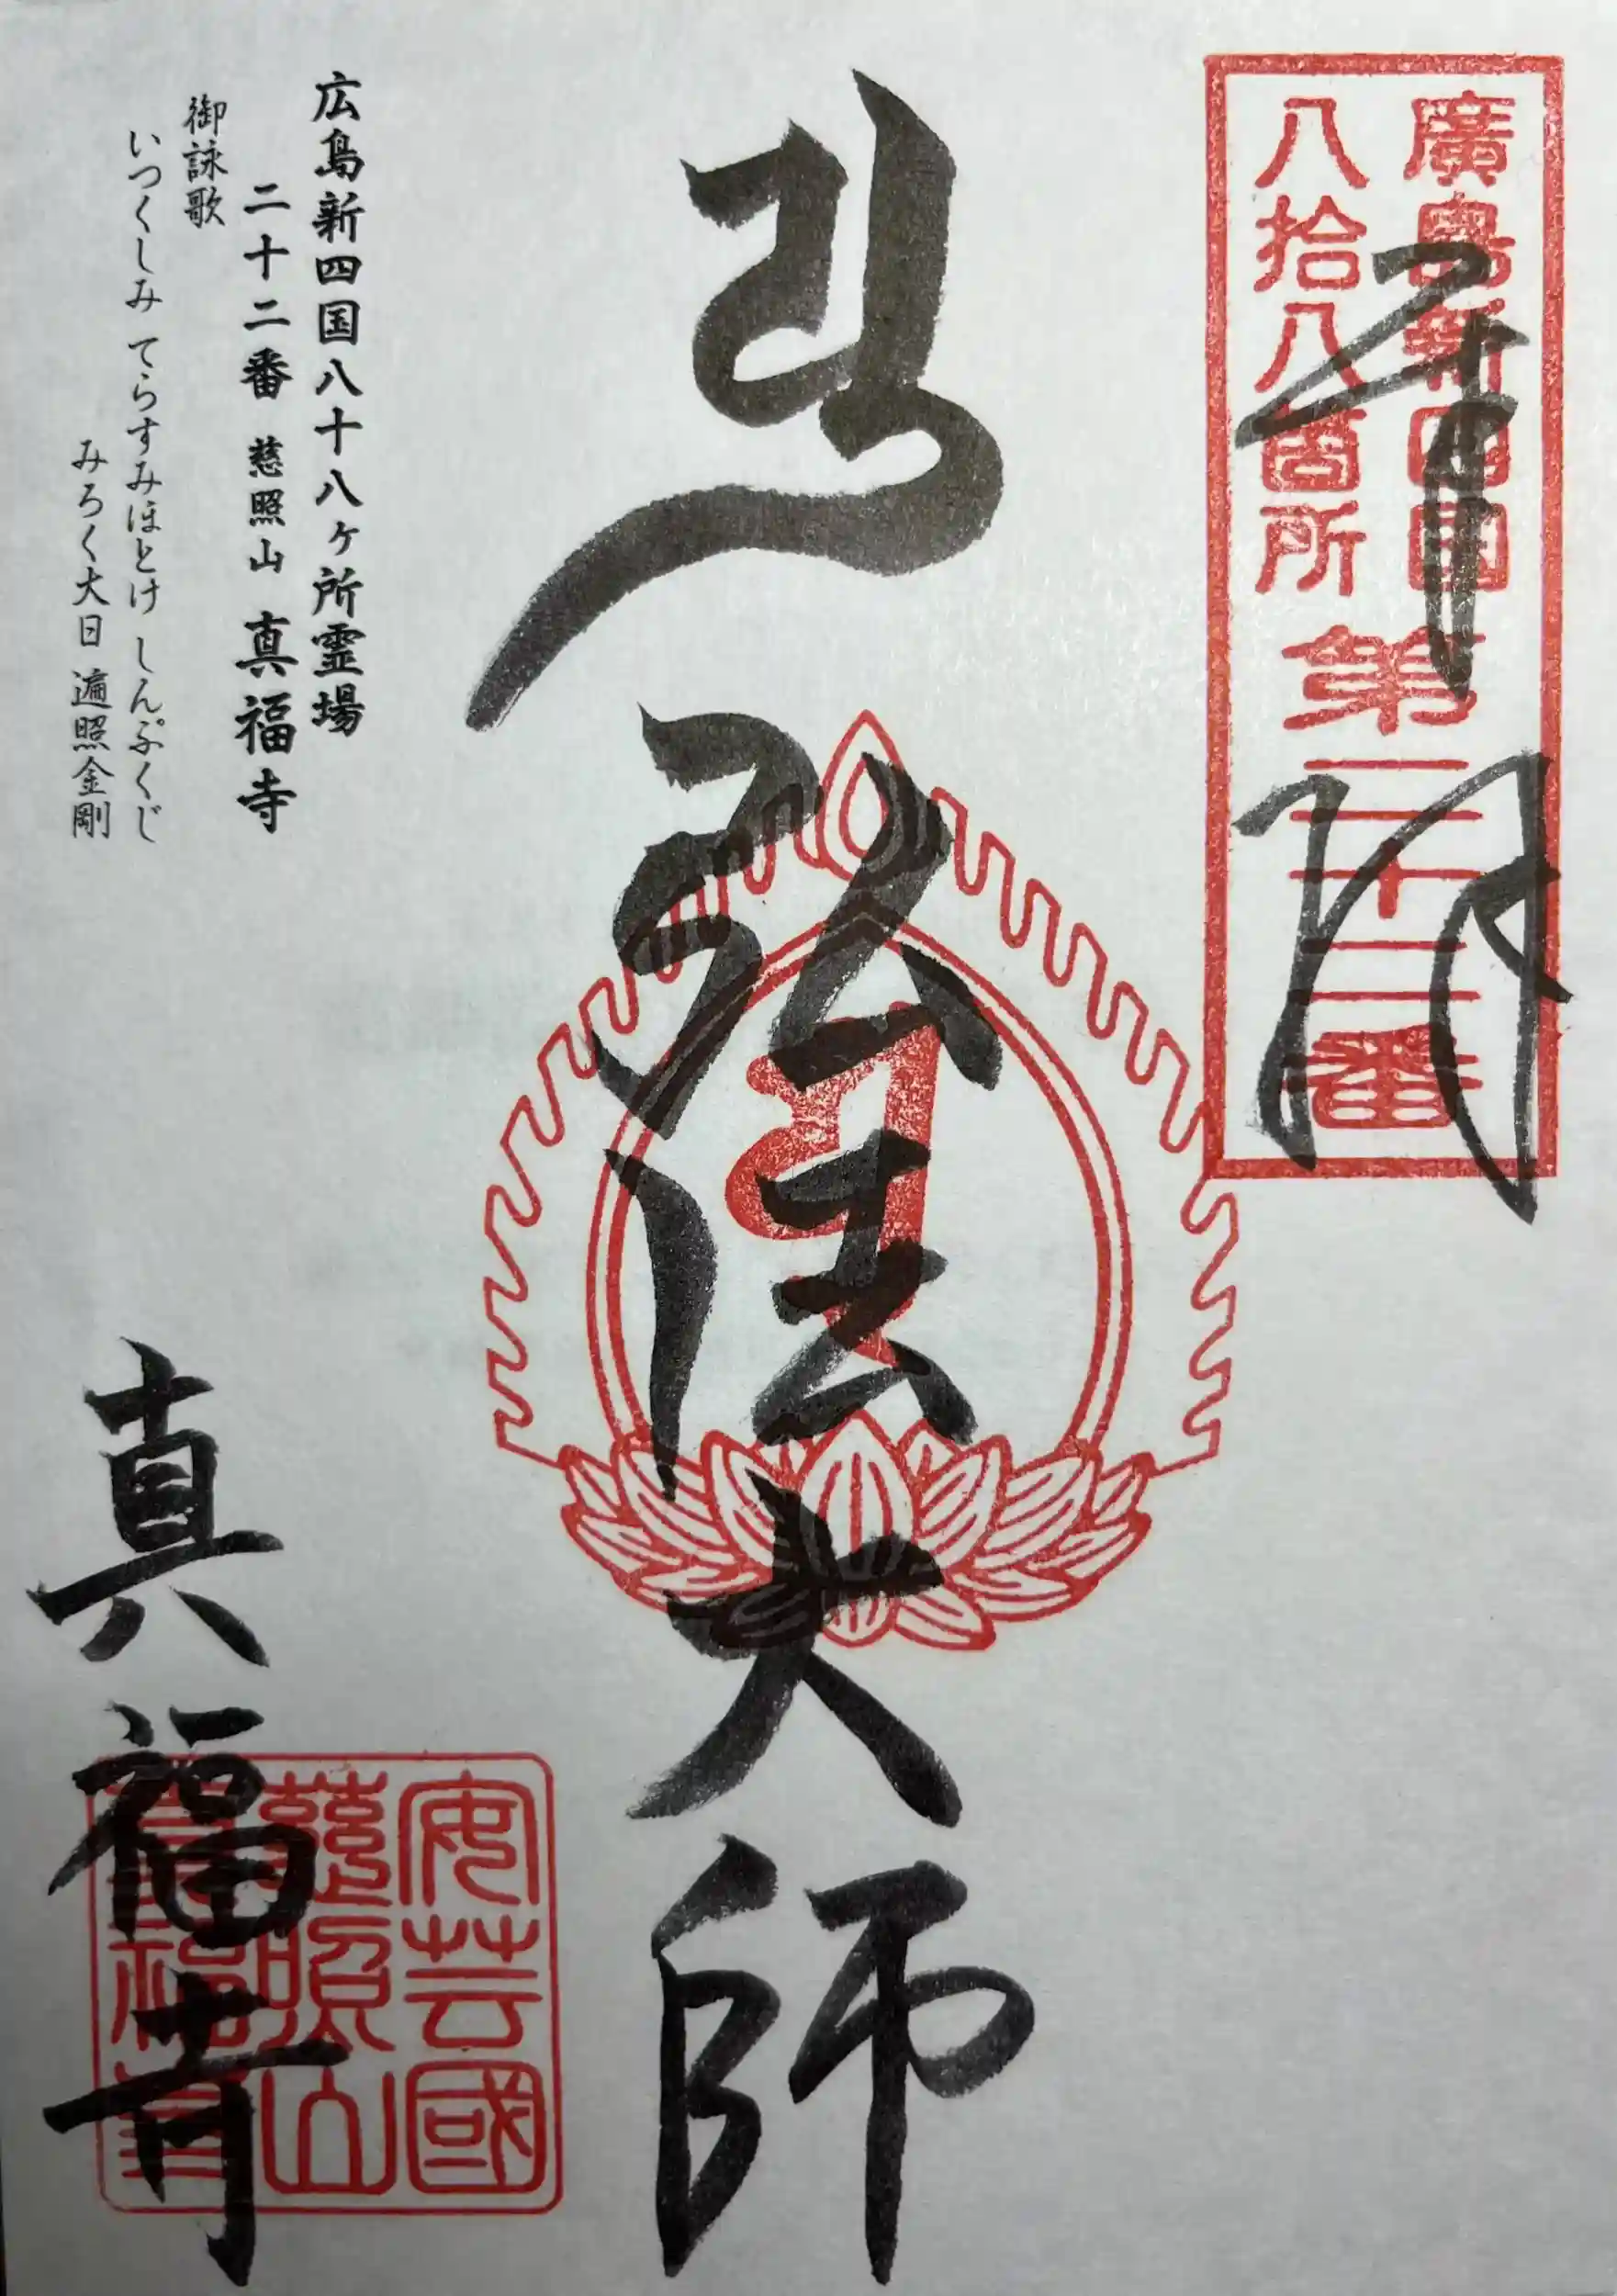 奉拝
廣島新四国
八拾八箇所
第二十二番
弘法大師
広島新四国八十八ヶ所霊場
二十二番 慈照山 真福寺
御詠歌
いつくしみ てらすみほとけ しんぷくじ
みろく大日 遍照金剛
真福寺
安芸國
慈照山
真福寺